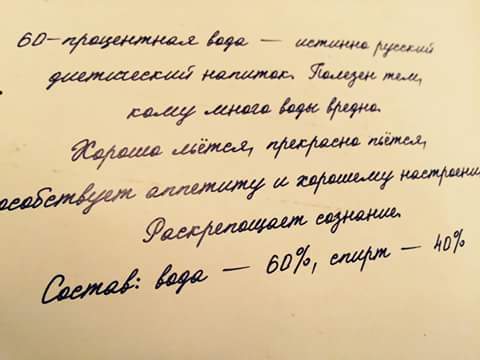 60-процентная вода — истинно русский
диетический напиток. Полезен тем,
кому много воды вредно.
Хорошо льётся, прекрасно пьётся,
особствует аппетиту и хорошему настроени
Раскрепощает сознание.
Состав: вода — 60%, спирт — 40%